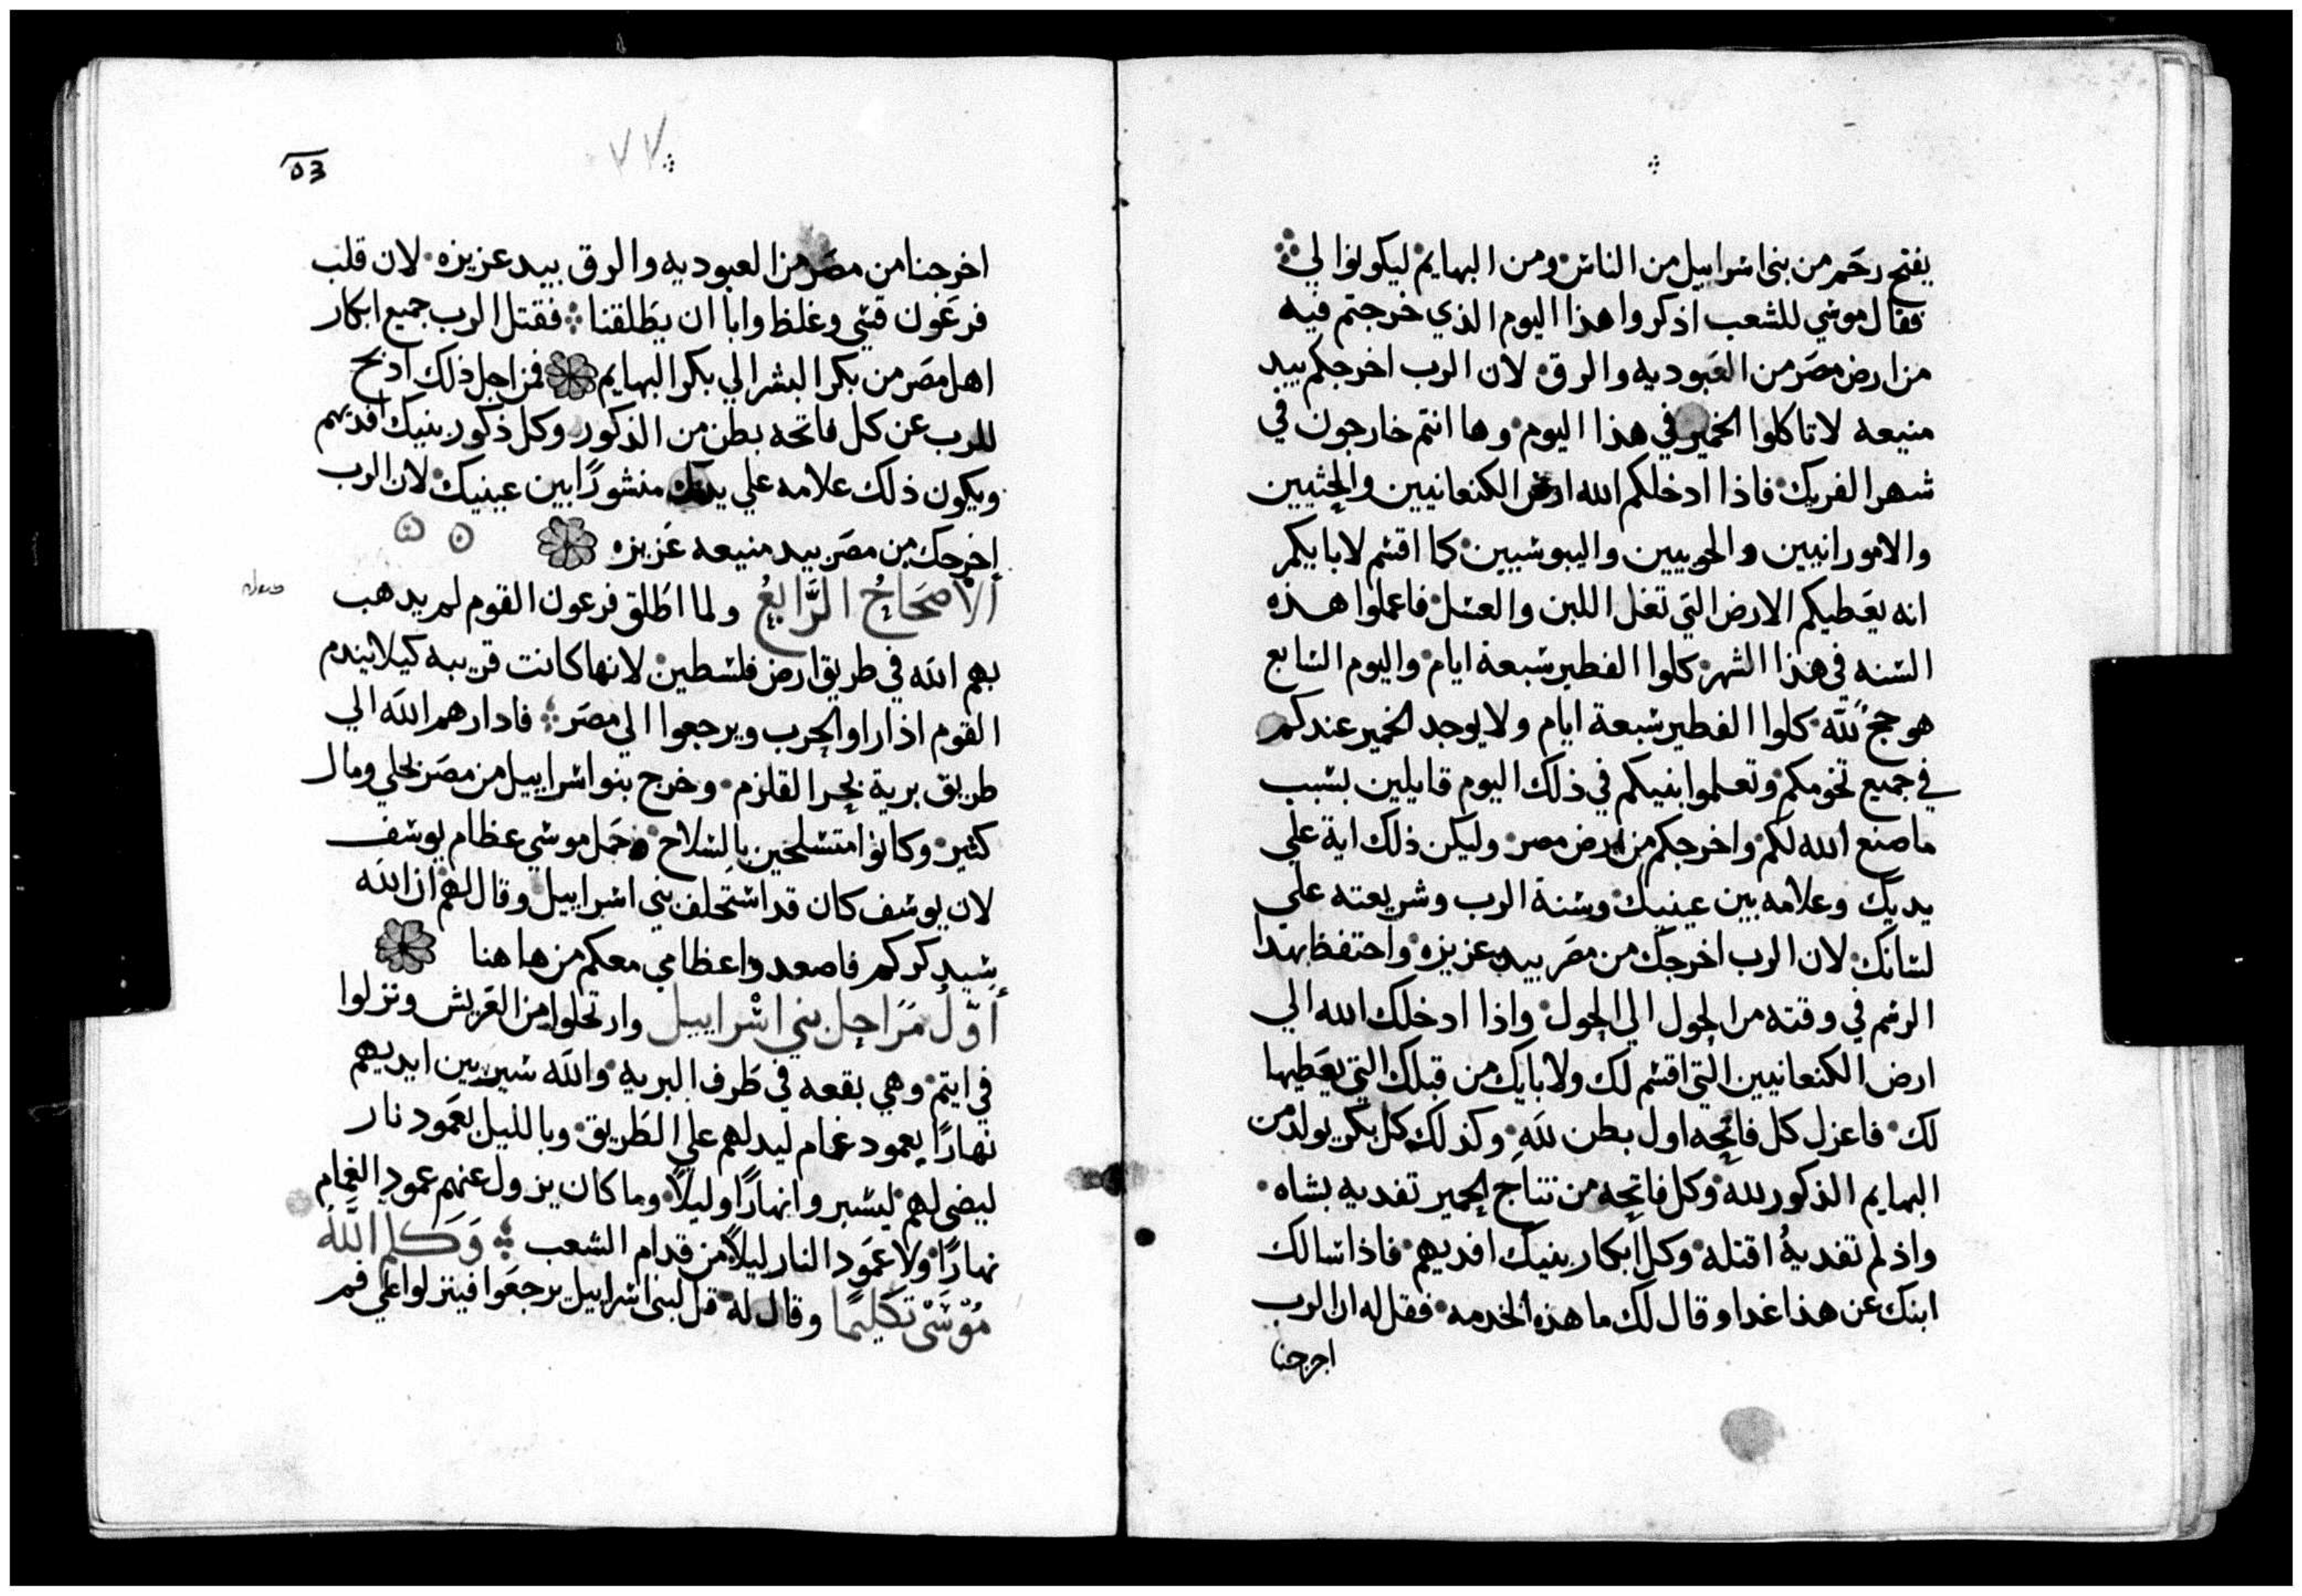 يفتح رحم من بني اسراييل من الناس ومن البهايم ليكونوا لي
فقال موسي للشعب اذكروا هذا اليوم الذي خرجتم فيه
من ارض مصر من العبوديه والرق لان الرب اخرجكم بيد
منيعه لا تاكلوا الخمير في هذا اليوم وها انتم خارجون في
شهر الفريك فاذا ادخلكم الله ارض الكنعانيين والحثيين
والامورانيين والحويين واليبوسيين كما اقسم لابايكم
انه يعطيكم الارض التي تغل اللبن والعسل فاعملوا هذه
السنه في هذا الشهر كلوا الفطير سبعة ايام واليوم السابع
هو حج لله كلوا الفطير سبعة ايام ولا يوجد الخمير عندكم
في جميع تخومكم وتعلموا بنيكم في ذلك اليوم قايلين بسبب
ما صنع الله لكم واخرجكم من ارض مصر وليكن ذلك اية علي
يديك وعلامه بين عينيك وسنة الرب وشريعته علي
لسانك لان الرب اخرجك من مصر بيد عزيزه واحتفظ بهذا
الرسم في وقته من الحول الي الحول واذا ادخلك الله الي
ارض الكنعانيين التي اقسم لك ولابايك من قبلك التي يعطيها
لك فاعزل كل فاتحه اول بطن لله وكذلك كل بكر يولد من
البهايم الذكور لله وكل فاتحه من نتاج الحمير تفديه بشاه
واذ لم تفديه اقتله وكل ابكار بنيك افديهم فاذا سالك
ابنك عن هذا غدا وقال لك ما هذه الخدمه فقل له ان الرب
اخرجنا
٧٧
53
اخرجنا من مصر من العبوديه والرق بيد عزيزه لان قلب
فرعون قسي وغلظ وابا ان يطلقنا فقتل الرب جميع ابكار
اهل مصر من بكر البشر الي بكر البهايم فمن اجل ذلك اذبح
للرب عن كل فاتحه بطن من الذكور وكل ذكور بنيك افديهم
ويكون ذلك علامه علي يدك منشورًا بين عينيك لان الرب
اخرجك من مصر بيد منيعه عزيزه
الأصحَاحُ الرَّابِعُ ولما اطلق فرعون القوم لم يدهب
بهم الله في طريق ارض فلسطين لانها كانت قريبه كيلا يندم
القوم اذا راوا الحرب ويرجعوا الي مصر فادارهم الله الي
طريق برية بحر القلزم وخرج بنوا اسراييل من مصر بحلي ومال
كثير وكانوا متسلحين بالسلاح وحمل موسي عظام يوسف
لان يوسف كان قد استحلف بني اسراييل وقال لهم ان الله
سيدكركم فاصعدوا عظامي معكم من هاهنا
أوّل مَرَاحِل بني اسْراييل وارتحلوا من العريش ونزلوا
في ايتم وهي بقعه في طرف البريه والله سير بين ايديهم
نهارًا بعمود غمام ليدلهم علي الطريق وبالليل بعمود نار
ليضي لهم ليسيروا نهارًا وليلًا وما كان يزول عنهم عمود الغمام
نهارًا ولا عمود النار ليلًا من قدام الشعب وَكلم اللَّه
مُوسَى تَكليمًا وقال له قل لبني اسراييل يرجعوا فينزلوا علي فم